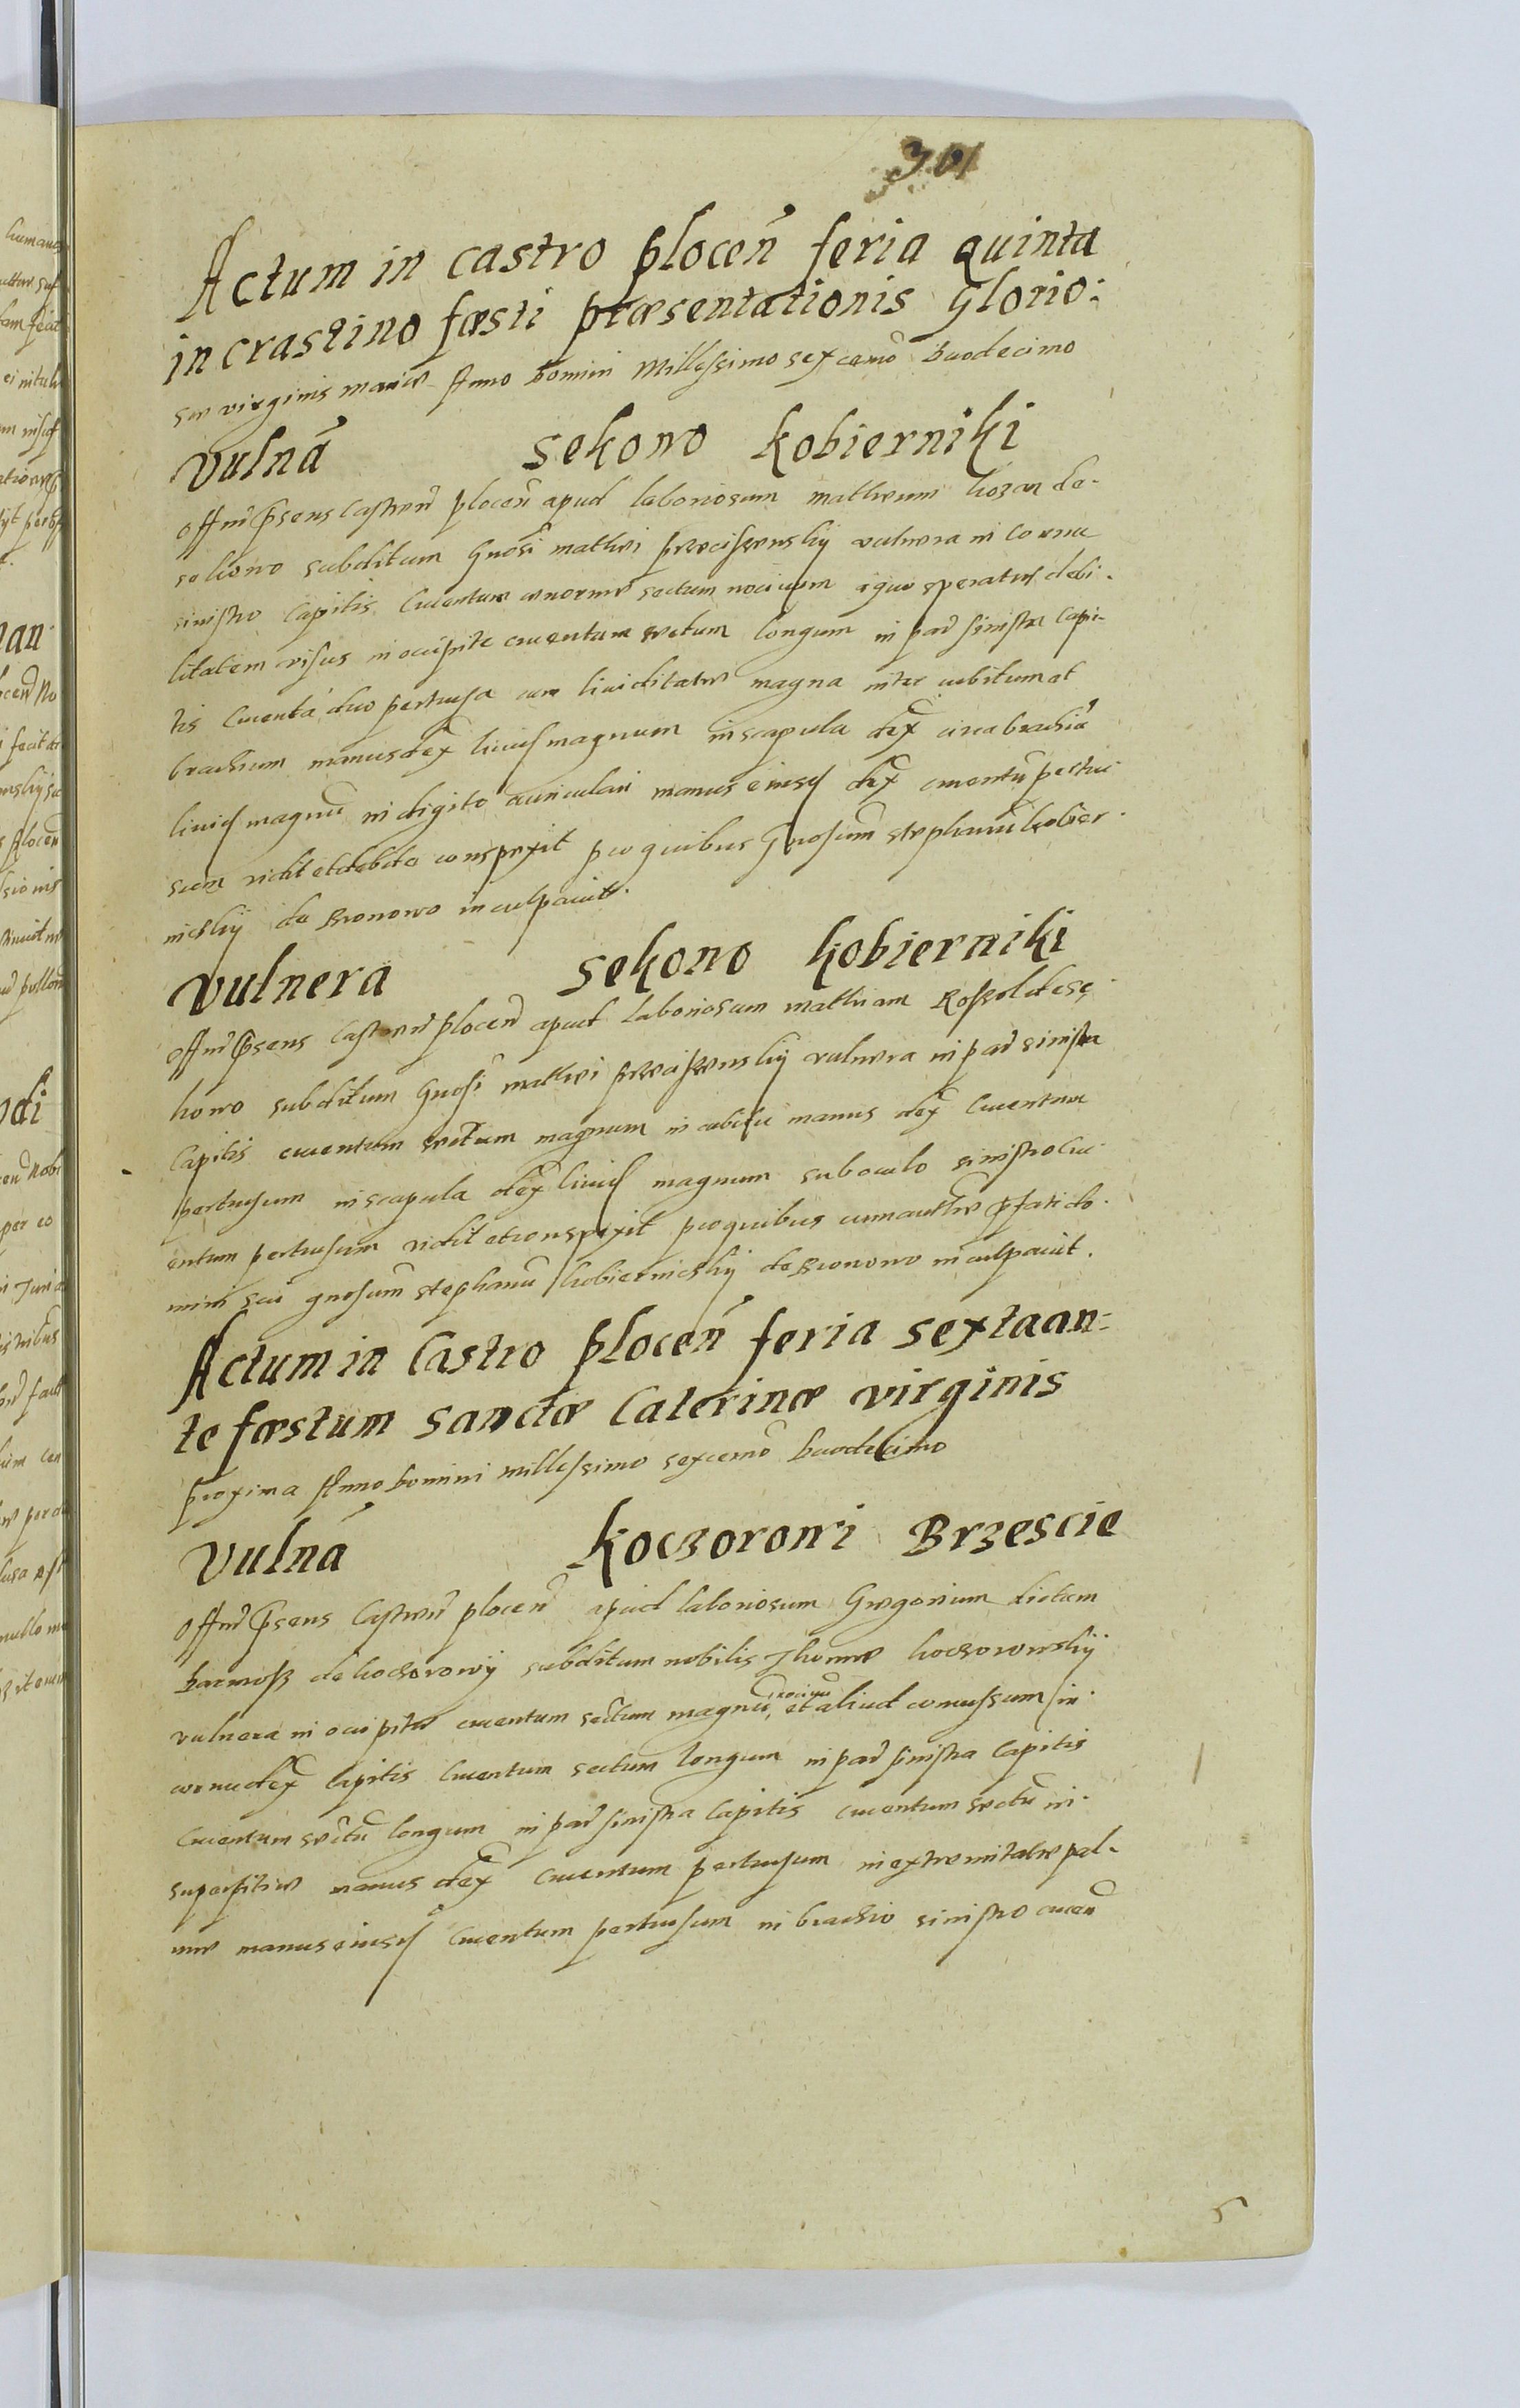 301
Actum in castro plocen̄ feria quinta
in crastino fæsti præsentationis Glorio:
sæ virginis mariæ Anno Domini Millessimo sexcenō Duodecimo
Vulnā sekowo kobierniki
Offm̄ Pn̄s ens Castren̄ plocen̄ apud laboriosum matheum kozan de
sekowo subditum Gnōsi mathei vulnera in cornu
sinistro capitis Cruentum enorme sectum nociuum a quo speratur debi-
litatem visus in occipite cruentum sectum longum in par̄ sinistra capi-
tis Cruenta duo pertusa cum liuiditate magna inter cubitum et
brachium manus dex̄ liuid̄ magnum in scapula dex̄ circa brachiū
liuid̄ magnū in digito auriculari manus eiusd̄ dex̄ cruentū pertu-
sum vidit et debite conspexit pro quibus Gnosum̄ stephanū kobier-
nickij de Bronowo inculpauit.
Vulnera sekowo kobierniki
Offm̄ Pn̄sens Castren̄ plocen̄ apud laboriosum mathiam de se-
kowo subditum Gnosi mathei vulnera in par̄ sinistra
capitis cruentum sectum magnum in cubitu manus dex̄ Cruentum
pertusum in scapula dex̄ liuid̄ magnum sub oculo sinistro Cru-
entum pertusum vidit et conspexit pro quibus cum auctore pn̄fati do-
mini sui gnosum̄ stephanū kobiernickij de Bronowo inculpauit.
Actum in Castro plocen̄ feria sexta an:
te fæstum sanctæ Caterinæ virginis
proxima Anno Domini millessimo sexcenō Duodecimo
Vulnā koczorowi Brzescie
Offm̄ Pn̄sens Castren̄ plocen̄ apud laboriosum Gregorium dictum
de koczorowÿ subditum nobilis Thomæ koczorowskij
vulnera in occipite cruentum sectum magnū nociuū et aliud comussum in
cornu dex̄ capitis Cruentum sectum longum in par̄ sinistra Capitis
Cruentum sectū longum in par̄ sinistra Capitis cruentum sectū in
superfitie manus dex̄ Cruentum pertusum in extremitate pal-
mæ manus eiusd̄ Cruentum pertusum in brachio sinistro cruen̄